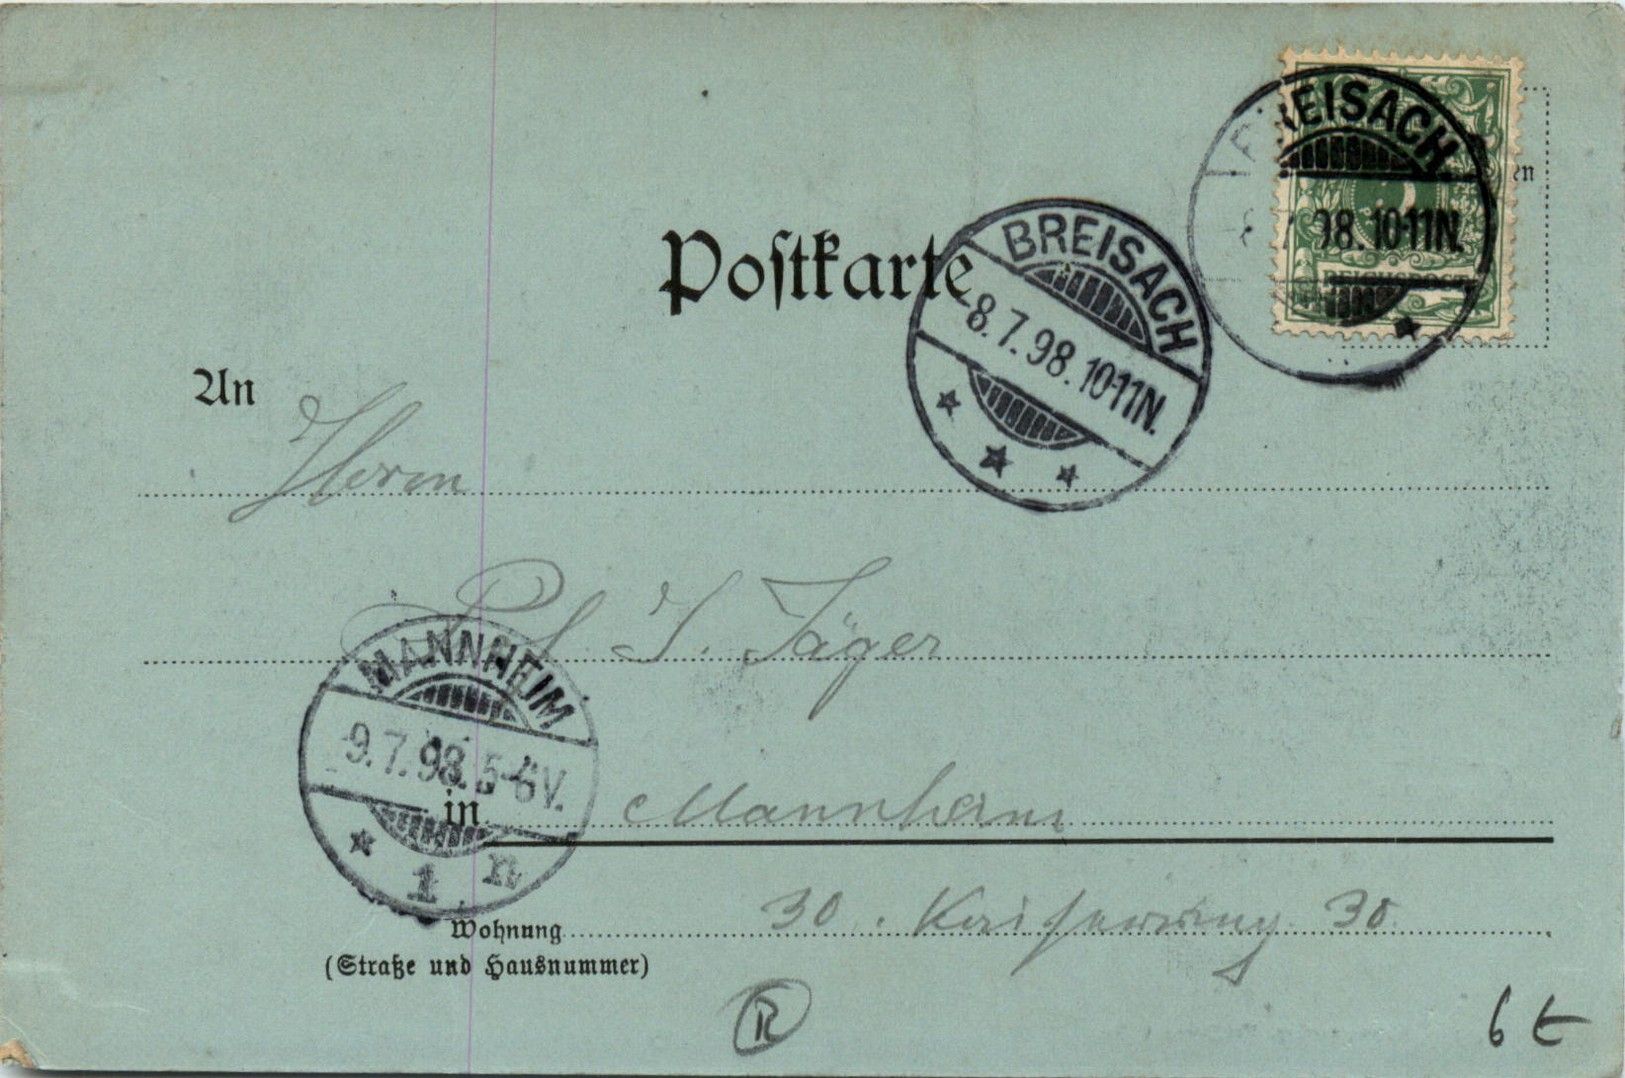 BREISACH
8.7.98.10-11N.
REICHSPOST
en
Postkarte
BREISACH
-8.7.98.10-11N.
An
Herrn
J. Jäger
MANNHEIM
9.7.98.5-6V.
1 n
in Mannheim
Wohnung 30. Kaiserring 30
(Straße und Hausnummer)
R
6 €